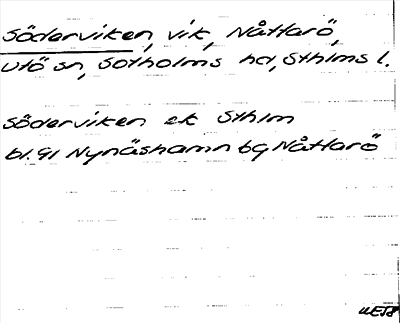 Söderviken, vik, Nåttarö,
Utö sn, Sotholms hd, Sthlms l.
Söderviken ek Sthlm
bl. 91 Nynäshamn bg Nåttarö